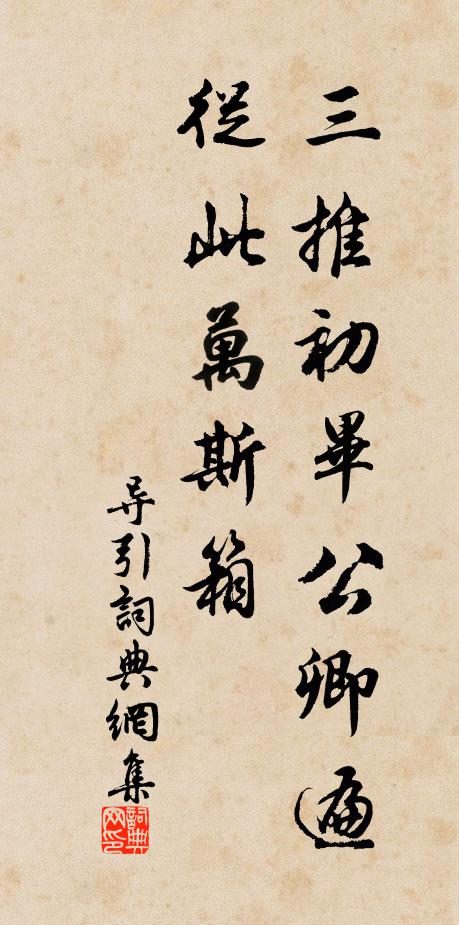 三推初畢公卿遍
從此萬斯箱
导引詞典網集
詞典
网印